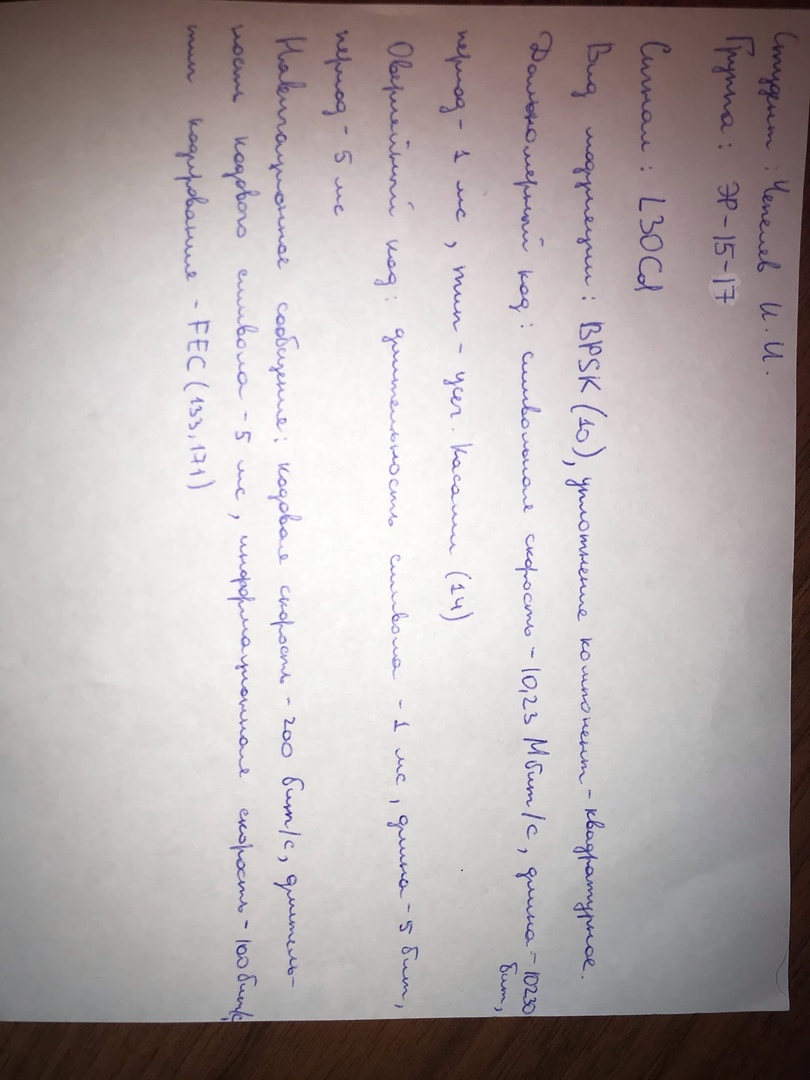 Студент: Чепелев И.И.
Группа: ЭР-15-17
Сигнал: L3OCd
Вид модуляции: BPSK (10), уплотнение компонент - квадратурное.
Дальномерный код: символьная скорость - 10,23 Мбит/с, длина - 10230 бит,
период - 1 мс, тип - усеч. Касами (14)
Оверлейный код: длительность символа - 1 мс, длина - 5 бит,
период - 5 мс
Навигационное сообщение: кодовая скорость - 200 бит/с, длитель-
ность кодового символа - 5 мс, информационная скорость - 100 бит/с,
тип кодирования - FEC (133, 171)